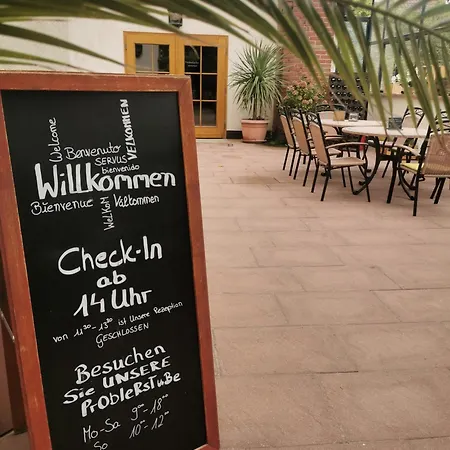 Welcome
VELKOMMEN
Benvenuto
SERVUS
bienvenido
Willkommen
Bienvenue
WELKOM
Välkommen
Check-In
ab
14 Uhr
von 11³⁰-13³⁰ ist Unsere Rezeption
GESCHLOSSEN
Besuchen
Sie UNSERE
PrObIERSTuBE
Mo-Sa 9⁰⁰-18⁰⁰
So 10⁰⁰-12⁰⁰